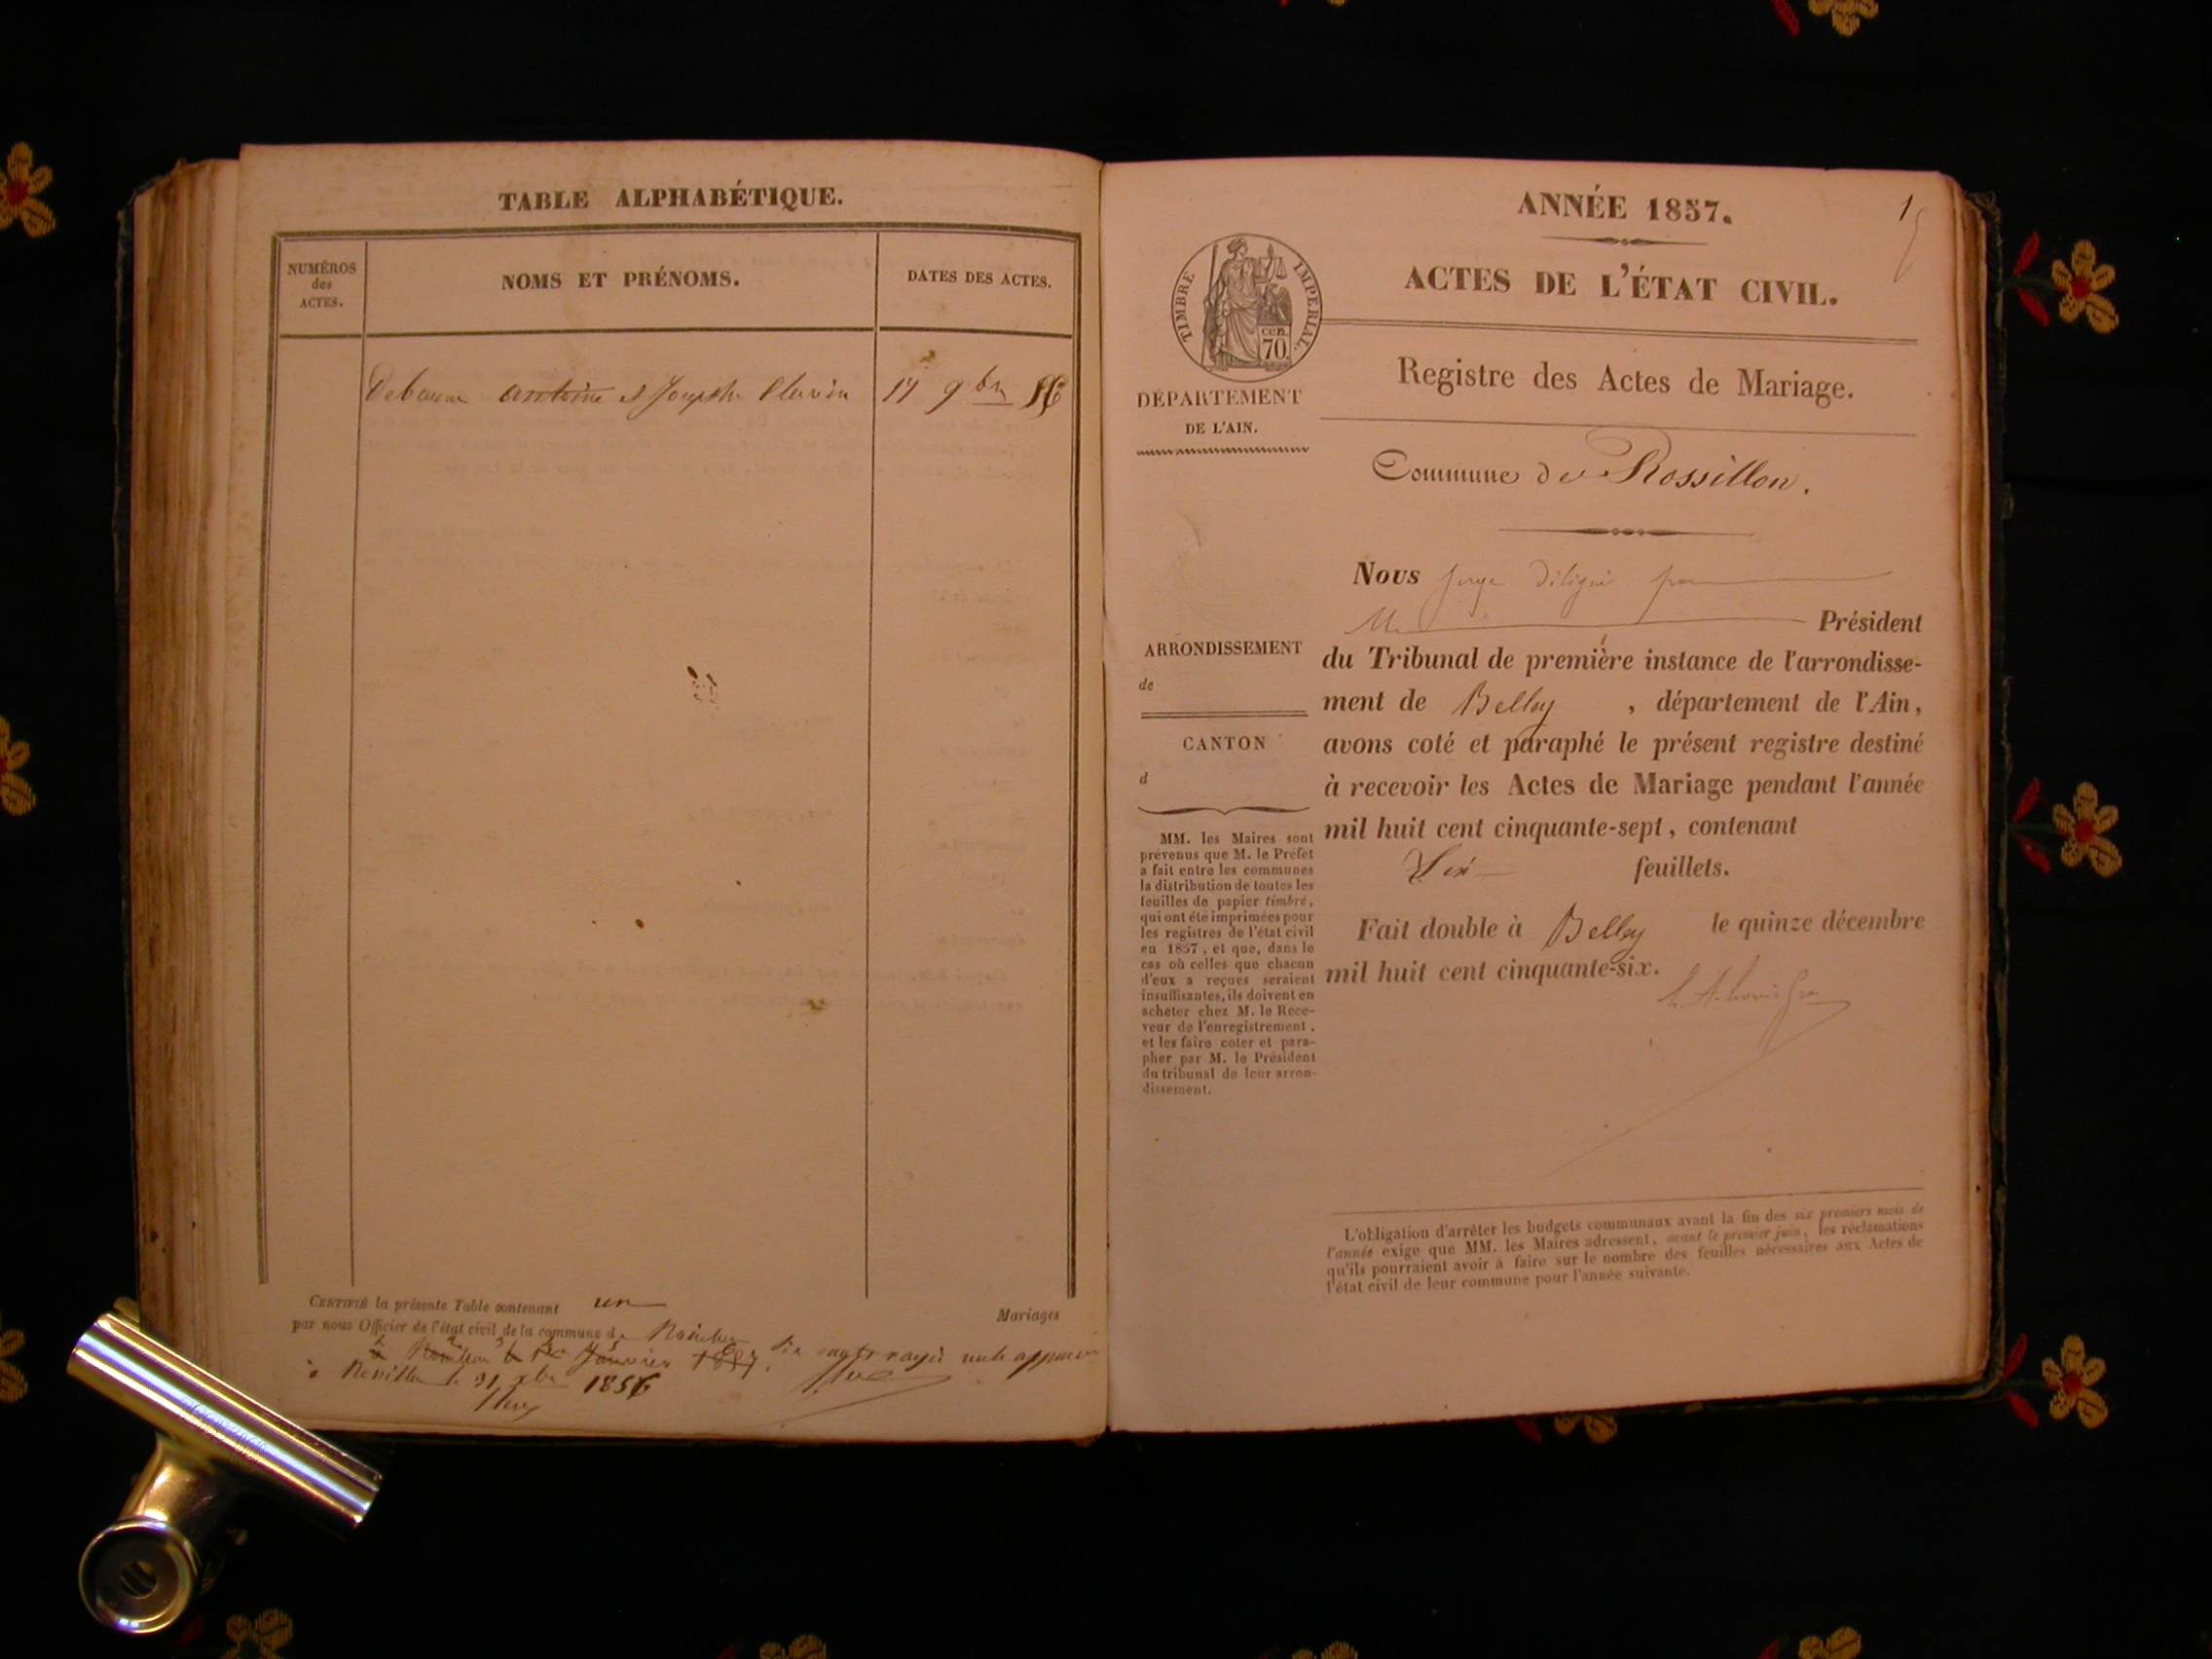 TABLE ALPHABÉTIQUE.
NUMÉROS
des
ACTES.
NOMS ET PRÉNOMS.
DATES DES ACTES.
antoine et 17 9bre 56
CERTIFIÉ la présente Table contenant un Mariages
par nous Officier de l'état civil de la commune d
Janvier 1857. rayés
à le 31 1856
ANNÉE 1857.
1
TIMBRE IMPERIAL.
cen.
70.
ACTES DE L'ÉTAT CIVIL.
Registre des Actes de Mariage.
DÉPARTEMENT
DE L'AIN.
Commune de Rossillon.
Nous Juge
M. Président
du Tribunal de première instance de l'arrondisse-
ment de Belley , département de l'Ain,
avons coté et paraphé le présent registre destiné
à recevoir les Actes de Mariage pendant l'année
mil huit cent cinquante-sept, contenant
Six feuillets.
Fait double à Belley le quinze décembre
mil huit cent cinquante-six.
ARRONDISSEMENT
de
CANTON
d
MM. les Maires sont
prévenus que M. le Préfet
a fait entre les communes
la distribution de toutes les
feuilles de papier timbré,
qui ont été imprimées pour
les registres de l'état civil
en 1857, et que, dans le
cas où celles que chacun
d'eux a reçues seraient
insuffisantes, ils doivent en
acheter chez M. le Rece-
veur de l'enregistrement,
et les faire coter et para-
pher par M. le Président
du tribunal de leur arron-
dissement.
L'obligation d'arrêter les budgets communaux avant la fin des six premiers mois de
l'année exige que MM. les Maires adressent, avant le premier juin, les réclamations
qu'ils pourraient avoir à faire sur le nombre des feuilles nécessaires aux Actes de
l'état civil de leur commune pour l'année suivante.